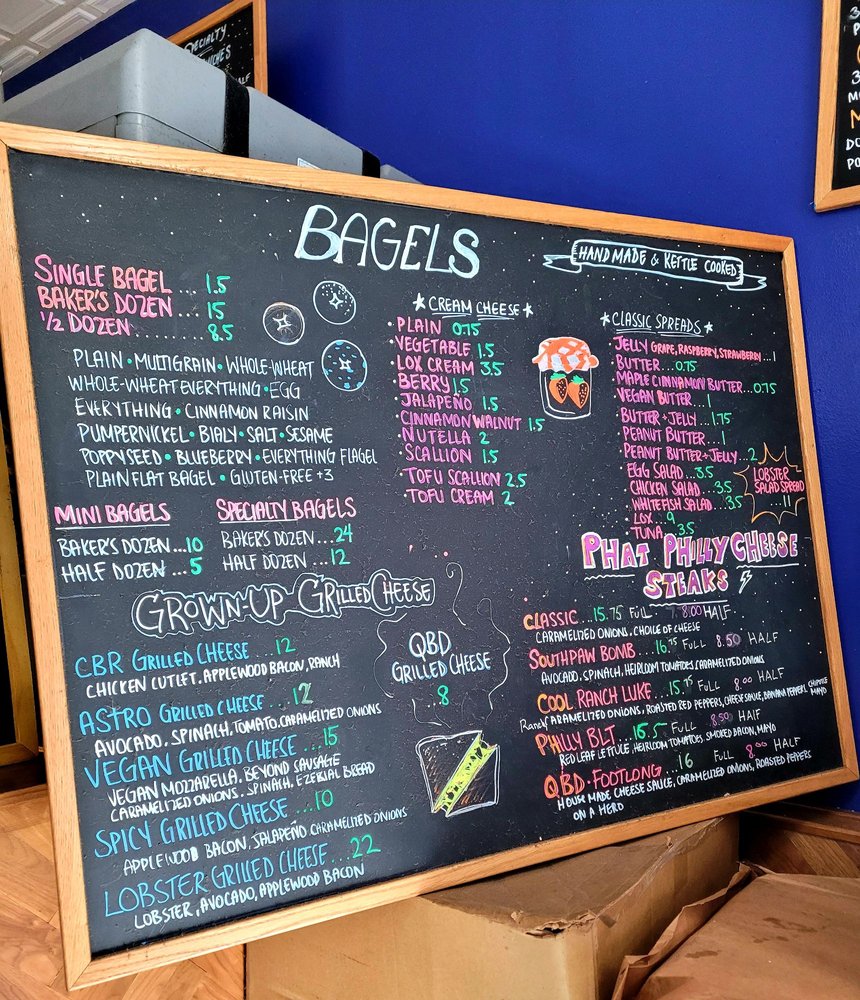 BAGELS
HANDMADE & KETTLE COOKED
SINGLE BAGEL ... 1.5
BAKER'S DOZEN ... 15
1/2 DOZEN ......... 8.5
PLAIN • MULTIGRAIN • WHOLE-WHEAT
WHOLE-WHEAT EVERYTHING • EGG
EVERYTHING • CINNAMON RAISIN
PUMPERNICKEL • BIALY • SALT • SESAME
POPPYSEED • BLUEBERRY • EVERYTHING FLAGEL
PLAIN FLAT BAGEL • GLUTEN-FREE +3
MINI BAGELS
BAKER'S DOZEN ... 10
HALF DOZEN ... 5
SPECIALTY BAGELS
BAKER'S DOZEN ... 24
HALF DOZEN ... 12
CREAM CHEESE
• PLAIN 0.75
• VEGETABLE 1.5
• LOX CREAM 3.5
• BERRY 1.5
• JALAPEÑO 1.5
• CINNAMON WALNUT 1.5
• NUTELLA 2
• SCALLION 1.5
• TOFU SCALLION 2.5
• TOFU CREAM 2
CLASSIC SPREADS
JELLY GRAPE, RASPBERRY, STRAWBERRY ... 1
• BUTTER ... 0.75
• MAPLE CINNAMON BUTTER ... 0.75
• VEGAN BUTTER ... 1
• BUTTER + JELLY ... 1.75
• PEANUT BUTTER ... 1
• PEANUT BUTTER + JELLY ... 2
• EGG SALAD ... 3.5
• CHICKEN SALAD ... 3.5
• WHITEFISH SALAD ... 3.5
• LOX ... 9
• TUNA ... 3.5
LOBSTER
SALAD SPREAD
... 11
GROWN-UP GRILLED CHEESE
CBR GRILLED CHEESE ... 12
CHICKEN CUTLET, APPLEWOOD BACON, RANCH
ASTRO GRILLED CHEESE ... 12
AVOCADO, SPINACH, TOMATO, CARAMELIZED ONIONS
VEGAN GRILLED CHEESE ... 15
VEGAN MOZZARELLA, BEYOND SAUSAGE
CARAMELIZED ONIONS, SPINACH, EZEKIAL BREAD
SPICY GRILLED CHEESE ... 10
APPLEWOOD BACON, JALAPEÑO CARAMELIZED ONIONS
LOBSTER GRILLED CHEESE ... 22
LOBSTER, AVOCADO, APPLEWOOD BACON
QBD
GRILLED CHEESE
.. 8
PHAT PHILLY CHEESE
STEAKS
CLASSIC ... 15.75 FULL 8.00 HALF
CARAMELIZED ONIONS, CHOICE OF CHEESE
SOUTHPAW BOMB ... 16.75 FULL 8.50 HALF
AVOCADO, SPINACH, HEIRLOOM TOMATOES, CARAMELIZED ONIONS
COOL RANCH LUKE ... 15.75 FULL 8.00 HALF
Ranch CARAMELIZED ONIONS, ROASTED RED PEPPERS, CHEESE SAUCE, BANANA PEPPERS, CHIPOTLE MAYO
PHILLY BLT ... 16.5 FULL 8.50 HALF
RED LEAF LETTUCE, HEIRLOOM TOMATOES, SMOKED BACON, MAYO
QBD • FOOTLONG ... 16 FULL 8.00 HALF
HOUSE MADE CHEESE SAUCE, CARAMELIZED ONIONS, ROASTED PEPPERS
ON A HERO